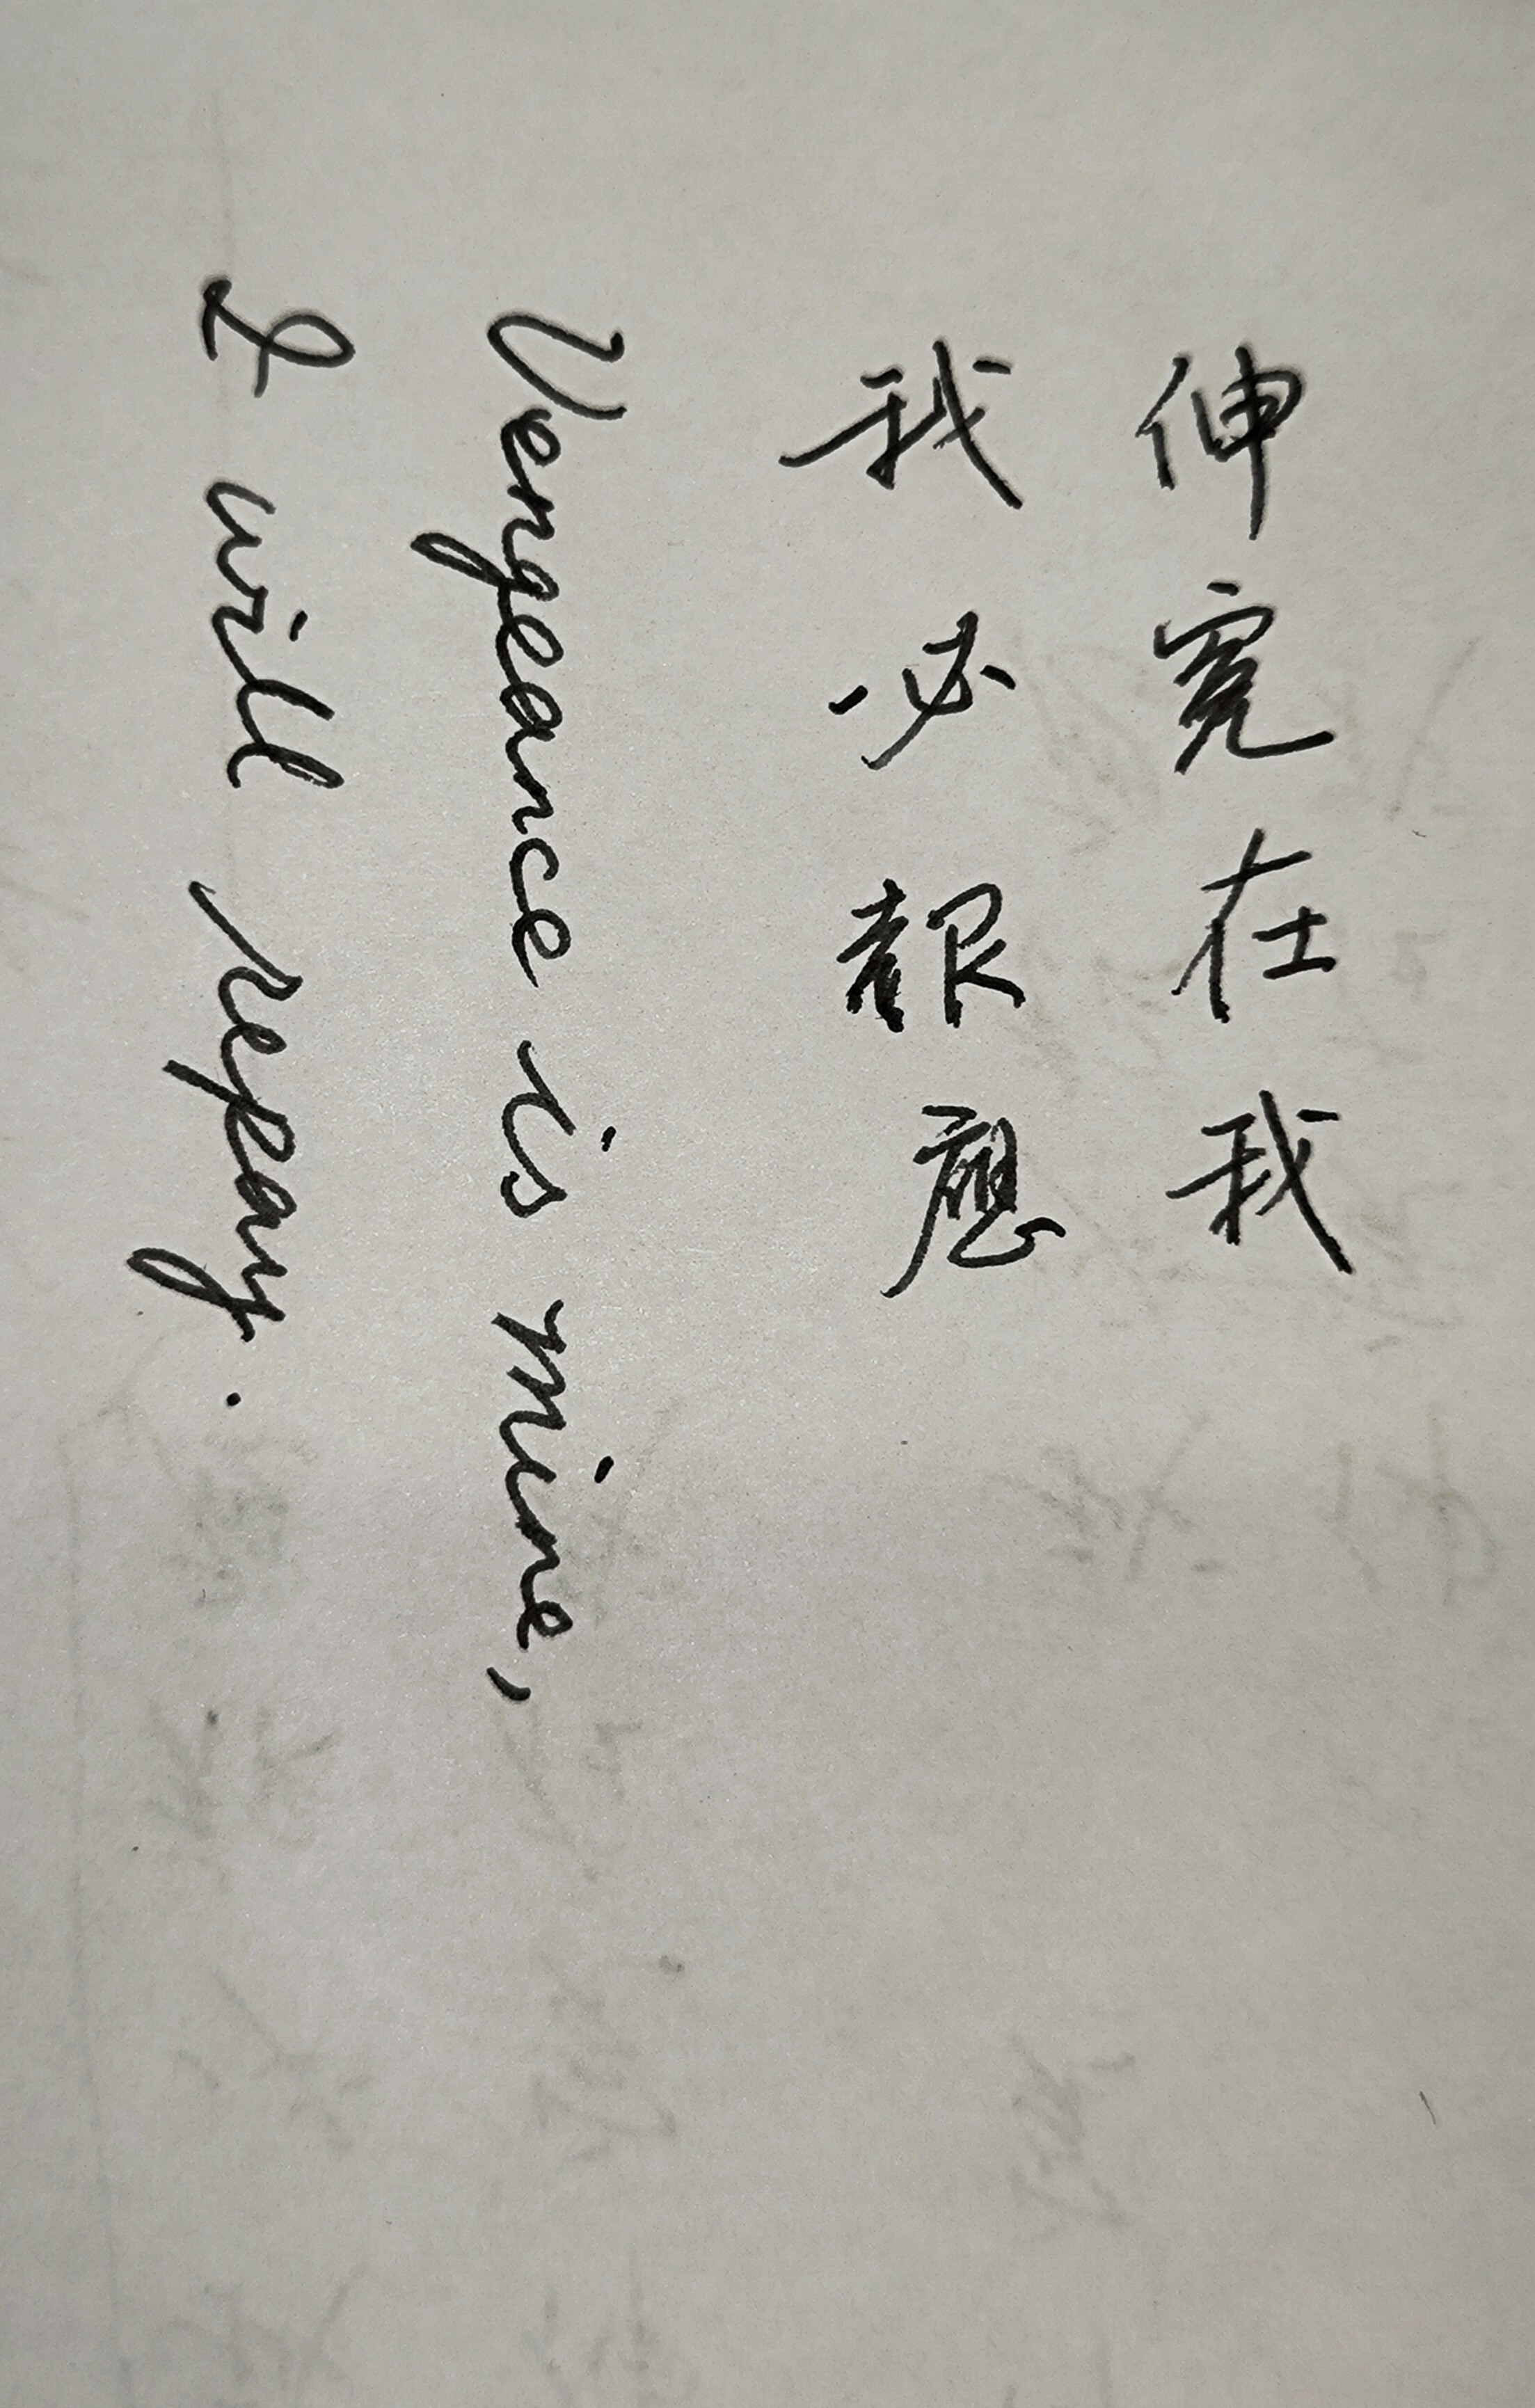 伸寃在我
我必報應
Vengeance is mine,
I will repay.